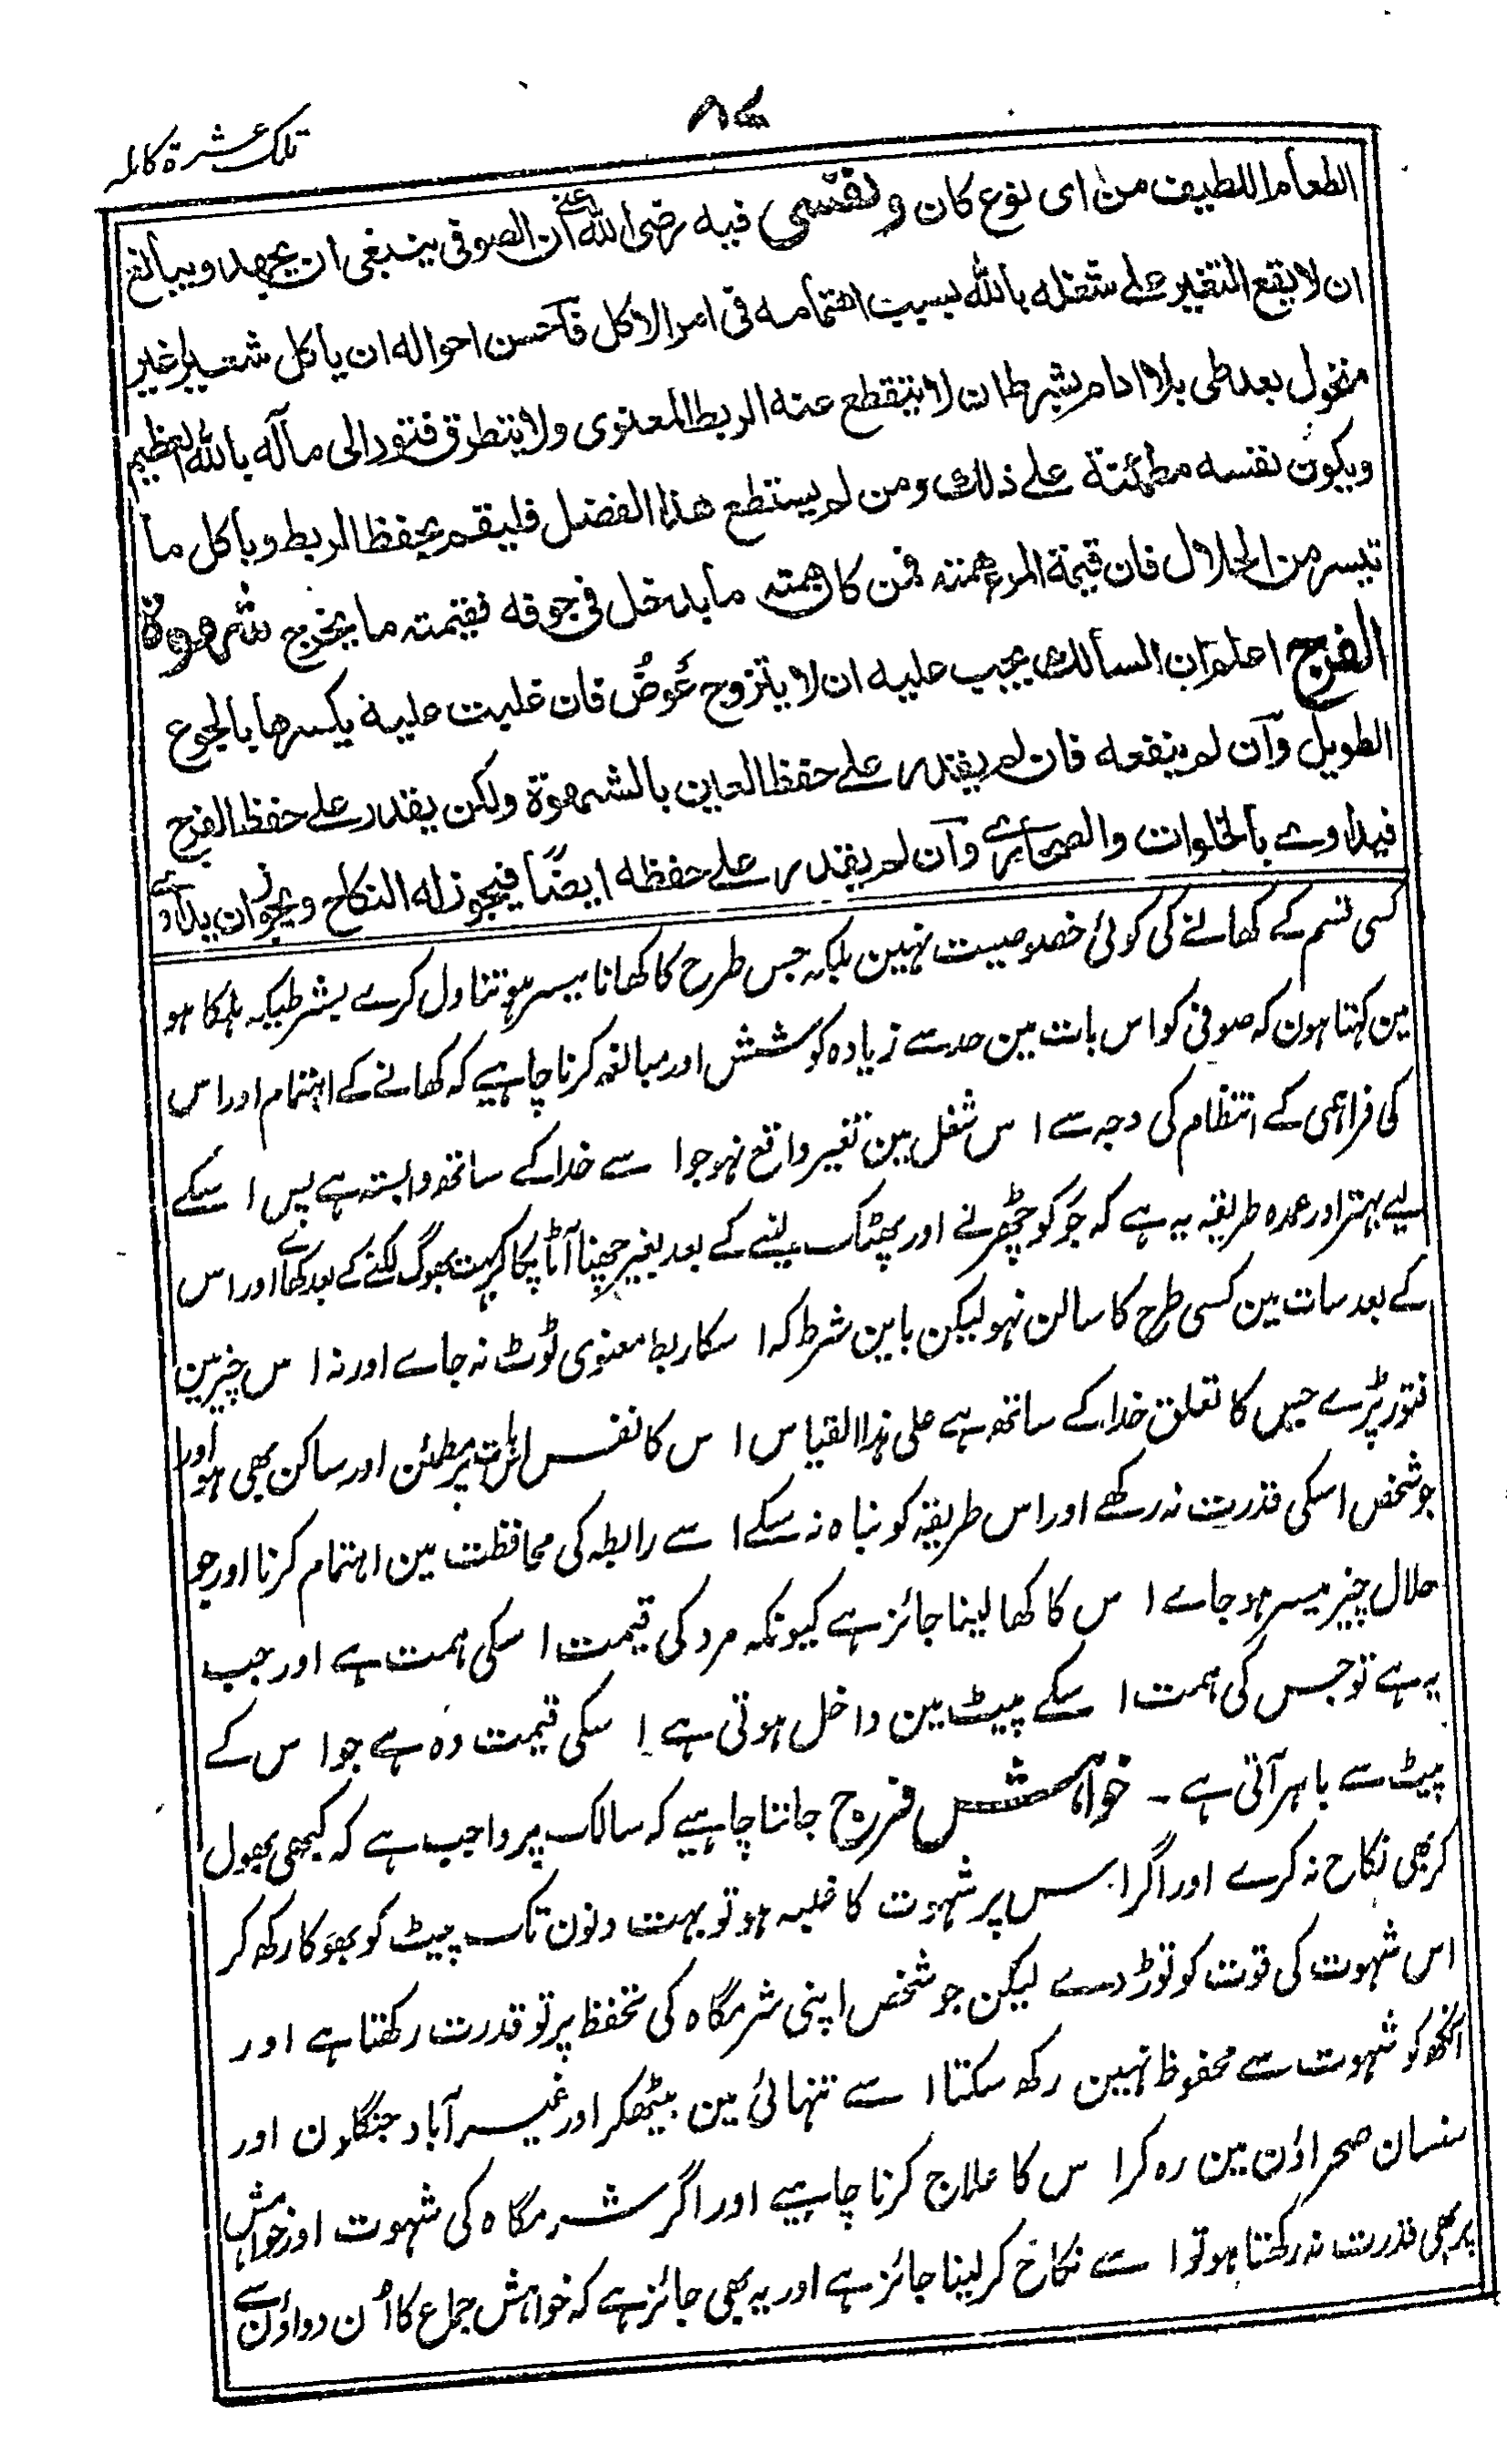 تلک عشرة کاملہ
الطعام اللطیف من ای نوع کان ونفسی فیه رضی الله عنه ان الصوفی ینبغی ان یجهد ویبالغ
ان لا یقع التغیر علے شغله بالله لسبب اهتمامه فی امر الاکل فاحسن احواله ان یاکل شعیرا غیر
منخول بعد طی بلا ادام بشرط ان لا ینقطع عنه الربط المعنوی ولا یتطرق فتور الی ماله بالله العظیم
ویکون نفسه مطمئنة علے ذلک ومن لم یستطع هذا الفضل فلیقم بحفظ الربط ویاکل ما
تیسر من الحلال فان قیمة المرء همته فمن کان همته ما یدخل فی جوفه فقیمته ما یخرج شهوة
الفرج اعلم ان السالک یجب علیه ان لا یتزوج عوض فان غلبت علیه یکسرها بالجوع
الطویل وان لم ینفعه فان لم یقدر علے حفظ العین بالشهوة ولکن یقدر علے حفظ الفرج
فیداوے بالخلوات والصحارے وان لم یقدر علے حفظه ایضًا فیجوز له النکاح ویجوز ان یداوے
کسی قسم کے کھانے کی کوئی خصوصیت نہین بلکہ جس طرح کا کھانا میسر ہو تناول کرے بشرطیکہ ہلکا ہو
مین کہتا ہون کہ صوفی کو اس بات مین حد سے زیادہ کوشش اور مبالغہ کرنا چاہیے کہ کھانے کے اہتمام اور اس
کی فراہمی کے انتظام کی وجہ سے اس شغل مین تغیر واقع نہو جو اسے خدا کے ساتھ وابستہ ہے پس اسکے
لیے بہتر اور عمدہ طریقہ یہ ہے کہ جَو کو چھڑنے اور پھٹک لینے کے بعد بغیر چھنا آٹا پکا کر بہت بھوک لگنے کے بعد کھائے اور اس
کے بعد سات مین کسی طرح کا سالن نہو لیکن باین شرط کہ اسکا ربط معنوی ٹوٹ نہ جاے اور نہ اس چیز مین
فتور پڑے جس کا تعلق خدا کے ساتھ ہے علی ہذا القیاس اس کا نفس اس بات پر مطمئن اور ساکن بھی ہو اور
جو شخص اسکی قدرت نہ رکھے اور اس طریقہ کو نباہ نہ سکے اسے رابطہ کی محافظت مین اہتمام کرنا اور جو
حلال چیز میسر ہو جاے اس کا کھا لینا جائز ہے کیونکہ مرد کی قیمت اسکی ہمت ہے اور جب
یہ ہے تو جس کی ہمت اسکے پیٹ مین داخل ہوتی ہے اسکی قیمت وہ ہے جو اس کے
پیٹ سے باہر آتی ہے ۔ خواہش فرج جاننا چاہیے کہ سالک پر واجب ہے کہ کبھی بھول
کر بھی نکاح نہ کرے اور اگر اس پر شہوت کا غلبہ ہو تو بہت دنون تک پیٹ کو بھوکا رکھ کر
اس شہوت کی قوت کو توڑ دے لیکن جو شخص اپنی شرمگاہ کی تحفظ پر تو قدرت رکھتا ہے اور
آنکھ کو شہوت سے محفوظ نہین رکھ سکتا اسے تنہائی مین بیٹھکر اور غیر آباد جنگلون اور
سنسان صحراؤن مین رہ کر اس کا علاج کرنا چاہیے اور اگر شرمگاہ کی شہوت اور خواہش
پر بھی قدرت نہ رکھتا ہو تو اسے نکاح کر لینا جائز ہے اور یہ بھی جائز ہے کہ خواہش جماع کا اُن دواؤن سے